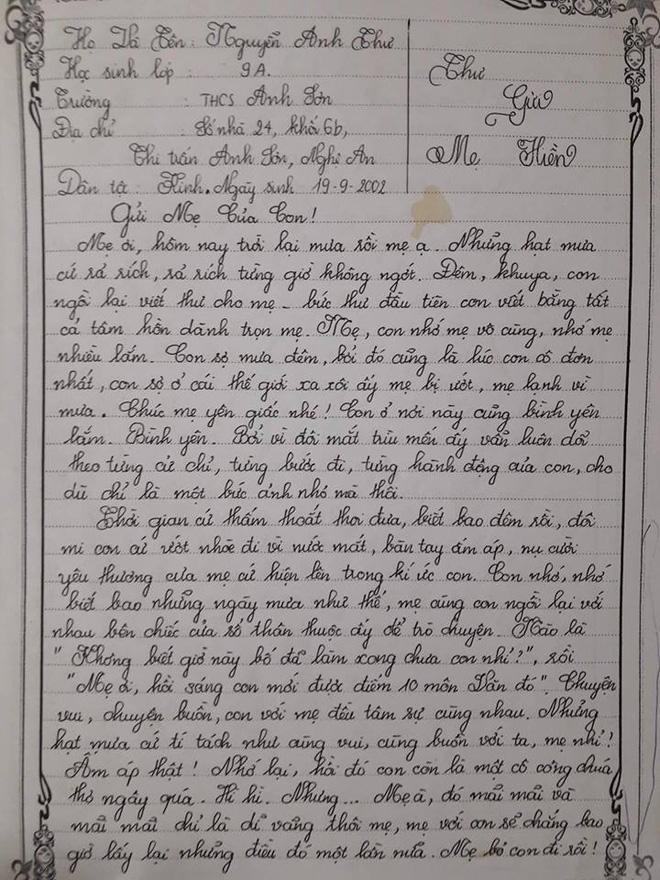 Họ Và Tên: Nguyễn Anh Thư
Học sinh lớp : 9A.
Trường : THCS Anh Sơn
Địa chỉ : Số nhà 24, khối 6b,
Thị trấn Anh Sơn, Nghệ An
Dân tộc : Kinh. Ngày sinh 19-9-2002
Thư
Gửi
Mẹ Hiền
Gửi Mẹ Của Con!
Mẹ ơi, hôm nay trời lại mưa rồi mẹ ạ. Những hạt mưa
cứ rả rích, rả rích từng giờ không ngớt. Đêm, khuya, con
ngồi lại viết thư cho mẹ - bức thư đầu tiên con viết bằng tất
cả tâm hồn dành trọn mẹ. Mẹ, con nhớ mẹ vô cùng, nhớ mẹ
nhiều lắm. Con sợ mưa đêm, bởi đó cũng là lúc con cô đơn
nhất, con sợ ở cái thế giới xa xôi ấy mẹ bị ướt, mẹ lạnh vì
mưa. Chúc mẹ yên giấc nhé! Con ở nơi này cũng bình yên
lắm. Bình yên. Bởi vì đôi mắt trìu mến ấy vẫn luôn dõi
theo từng cử chỉ, từng bước đi, từng hành động của con, cho
dù chỉ là một bức ảnh nhỏ mà thôi.
Thời gian cứ thấm thoắt thoi đưa, biết bao đêm rồi, đôi
mi con cứ ướt nhòe đi vì nước mắt, bàn tay ấm áp, nụ cười
yêu thương của mẹ cứ hiện lên trong kí ức con. Con nhớ, nhớ
biết bao những ngày mưa như thế, mẹ cùng con ngồi lại với
nhau bên chiếc cửa sổ thân thuộc ấy để trò chuyện. Nào là
"Không biết giờ này bố đã làm xong chưa con nhỉ?", rồi
"Mẹ ơi, hồi sáng con mới được điểm 10 môn Văn đó". Chuyện
vui, chuyện buồn, con với mẹ đều tâm sự cùng nhau. Những
hạt mưa cứ tí tách như cùng vui, cùng buồn với ta, mẹ nhỉ!
Ấm áp thật! Nhớ lại, hồi đó con còn là một cô công chúa
thơ ngây quá. Hì hì. Nhưng... Mẹ à, đó mãi mãi và
mãi mãi chỉ là dĩ vãng thôi mẹ, mẹ với con sẽ chẳng bao
giờ lấy lại những điều đó một lần nữa. Mẹ bỏ con đi rồi!